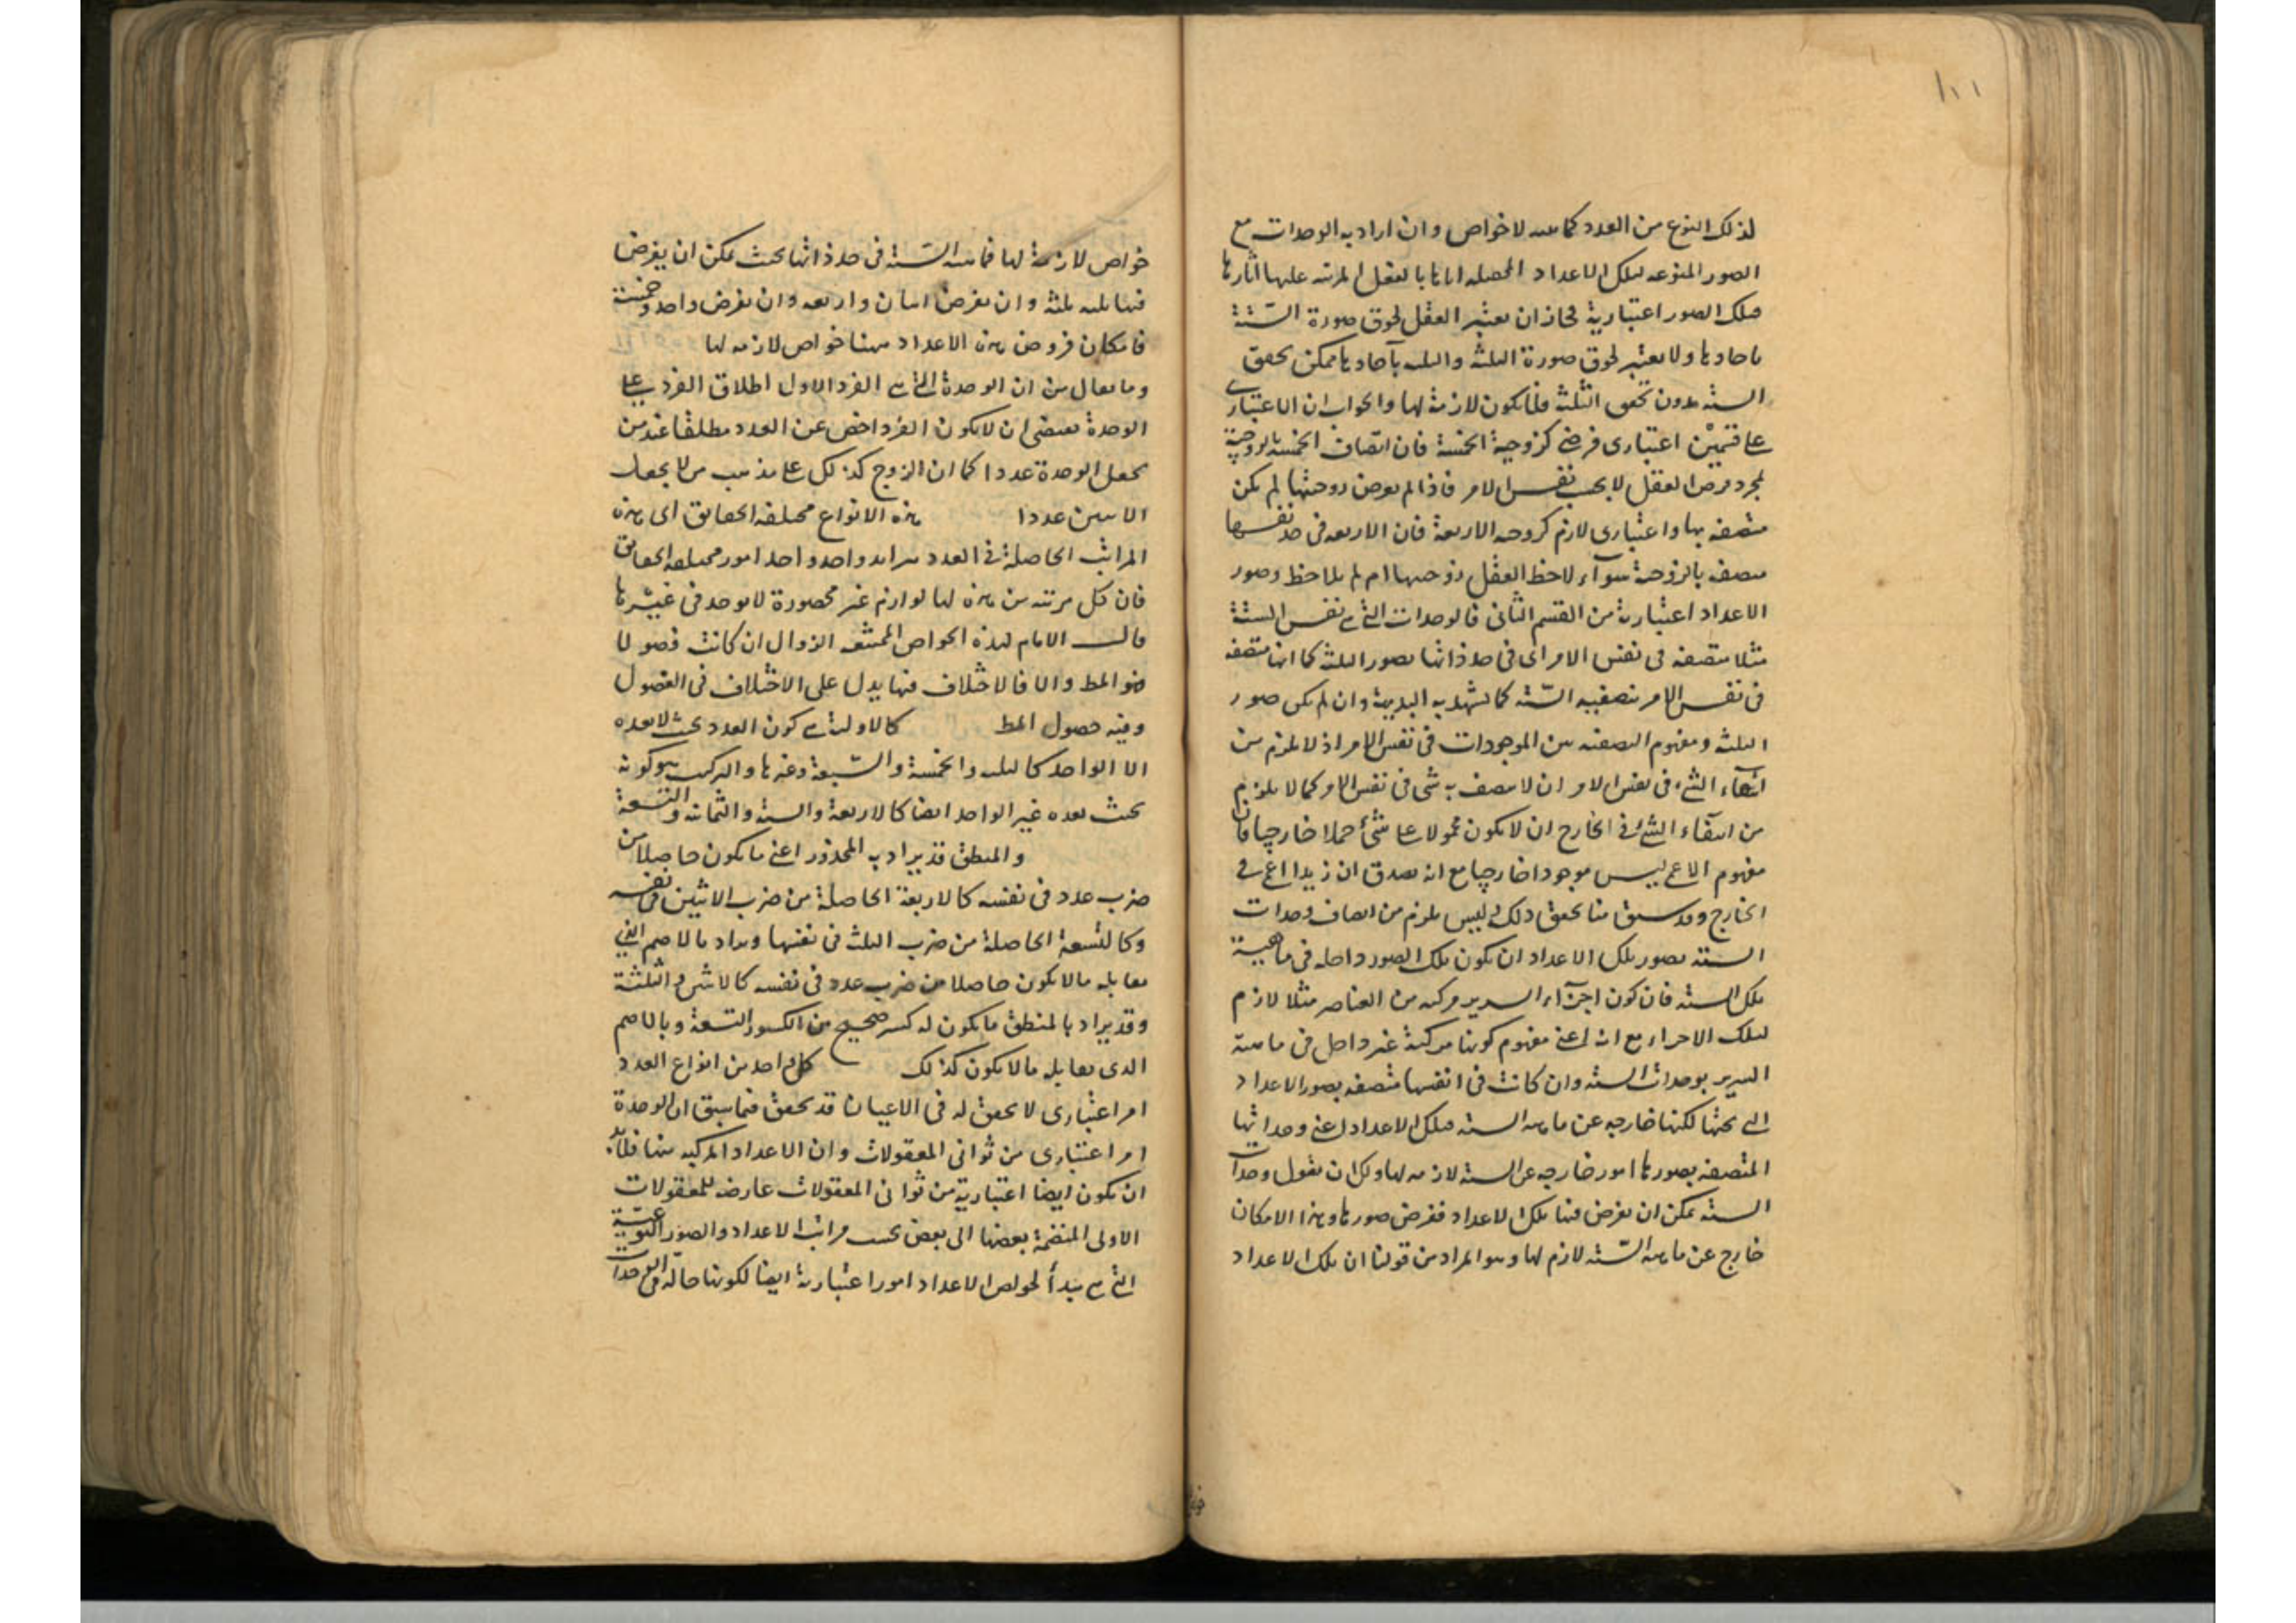 ١٠١
لذلك النوع من العدد كماهية لاخواص وان اراد به الوحدات مع
الصور المنوعه لتلك الاعداد المحصله اياها بالفعل المرتبه عليها اثارها
فتلك الصور اعتبارية فجاز ان يعتبر العقل لحوق صورة الستة
باحادها ولا يعتبر لحوق صورة الثلثة والثلثه بآحادها فيمكن تحقق
الستة بدون تحقق الثلثة فلا يكون لازمة لها والجواب ان الاعتباري
على قسمين اعتباري فرضي كزوجية الخمسة فان اتصاف الخمسة بالزوجية
بمجرد فرض العقل لا بحسب نفس الامر فاذا لم يفرض زوجيتها لم يكن
متصفه بها واعتباري لازم كزوجيه الاربعة فان الاربعه في حد نفسها
متصفه بالزوجية سوآء لاحظ العقل زوجيتها ام لم يلاحظ وصور
الاعداد اعتبارية من القسم الثاني فالوحدات التي هي نفس الستة
مثلا متصفه في نفس الامر اي في حد ذاتها بصور الثلثة كما انها متصفه
في نفس الامر بنصفيه الستة كما تشهد به البديهة وان لم يكن صور
الثلثة ومفهوم النصفيه من الموجودات في نفس الامر اذ لا يلزم من
انتفآء الشيء في نفس الامر ان لا يتصف به شي في نفس الامر كما لا يلزم
من انتفآء الشيء في الخارج ان لا يكون محمولا على شئ حملا خارجيا فان
مفهوم الاعمى ليس موجودا خارجيا مع انه يصدق ان زيدا اعمى في
الخارج وقد سبق منا تحقيق ذلك وليس يلزم من اتصاف وحدات
الستة بصور تلك الاعداد ان يكون تلك الصور داخله في ماهية
تلك الستة فان كون اجزآء السرير مركبه من العناصر مثلا لازم
لتلك الاجزاء مع انه اعني مفهوم كونها مركبة غير داخل في ماهية
السرير بوحدات الستة وان كانت في انفسها متصفه بصور الاعداد
التي تحتها لكنها خارجه عن ماهيه الستة فتلك الاعداد اعني وحداتها
المتصفه بصورها امور خارجه عن الستة لازمه لها ولك ان تقول وحدات
الستة يمكن ان يفرض فيها تلك الاعداد ففرض صورها وهذا الامكان
خارج عن ماهيه الستة لازم لها وهو المراد من قولنا ان تلك الاعداد
خواص لازمة لها فماهيه الستة في حد ذاتها بحيث يمكن ان يفرض
فيها ثلثه ثلثة وان يفرض اثنان واربعه وان يفرض واحد وخمسة
فامكان فروض هذه الاعداد فيها خواص لازمه لها
وما يقال من ان الوحدة التي هي الفرد الاول اطلاق الفرد على
الوحدة يقتضي ان لا يكون الفرد اخص من العدد مطلقا عند من
يجعل الوحدة عددا كما ان الزوج كذلك على مذهب من لا يجعل
الاثنين عددا هذه الانواع مختلفه الحقايق اى هذه
المراتب الحاصلة في العدد بتزايد واحد واحد امور مختلفه الحقايق
فان كل مرتبه من هذه لها لوازم غير محصورة لا توجد في غيرها
قال الامام لهذه الخواص الممتنعه الزوال ان كانت فصولا
فهو المط والا فالاختلاف فيها يدل على الاختلاف في الفصول
وفيه حصول المط كالاولية هي كون العدد بحيث لا يعده
الا الواحد كالثلثه والخمسة والسبعة وغيرها والتركيب هو كونه
بحيث يعده غير الواحد ايضا كالاربعة والستة والثمانية والتسعة
والمنطق قد يراد به المجذور اعني ما يكون حاصلا من
ضرب عدد في نفسه كالاربعة الحاصلة من ضرب الاثنين في نفسه
وكالتسعة الحاصلة من ضرب الثلثة في نفسها ويراد بالاصم الذي
يقابله ما لا يكون حاصلا من ضرب عدد في نفسه كالاثنين والثلثة
وقد يراد بالمنطق ما يكون له كسر صحيح من الكسور التسعة وبالاصم
الذي يقابله ما لا يكون كذلك كل واحد من انواع العدد
امر اعتباري لا تحقق له في الاعيان قد تحقق فيما سبق ان الوحدة
امر اعتباري من ثواني المعقولات وان الاعداد المركبه منها فلا بد
ان يكون ايضا اعتبارية من ثواني المعقولات عارضه للمعقولات
الاولى المنضمة بعضها الى بعض بحسب مراتب الاعداد والصور النوعية
التي هي مبدأ لخواص الاعداد امورا اعتبارية ايضا لكونها حالة في الوحدات